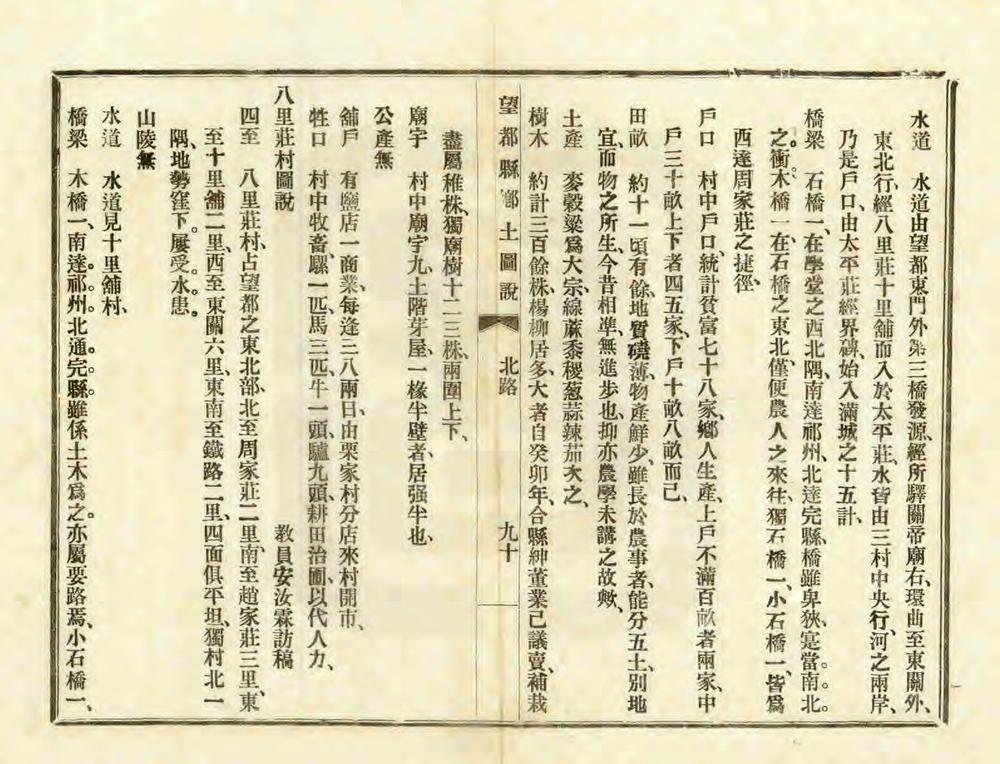 水道　水道由望都東門外第三橋發源、經所驛關帝廟右、環曲至東關外、
東北行、經八里莊十里舖而入於太平莊、水皆由三村中央行、河之兩岸、
乃是戶口、由太平莊經界碑、始入滿城之十五計、
橋梁　石橋一、在學堂之西北隅、南達祁州、北達完縣、橋雖卑狹、寔當。南。北。
之。衝。木橋一、在石橋之東北、僅便農人之來往、獨石橋一、小石橋一、皆爲
西達周家莊之捷徑、
戶口　村中戶口、統計貧富七十八家、鄉人生產、上戶不滿百畝者兩家、中
戶三十畝上下者四五家、下戶十畝八畝而已、
田畝　約十一頃有餘、地質磽薄、物產鮮少、雖長於農事者、能分五土、別地
宜、而物之所生、今昔相準、無進步也、抑亦農學未講之故歟、
土產　麥穀粱爲大宗、線蔴黍稷葱蒜辣茄次之、
樹木　約計三百餘株、楊柳居多、大者自癸卯年、合縣紳董業已議賣、補栽
望都縣鄉土圖說　北路　九十
盡屬稚株、獨廟樹十二三株、兩圍上下、
廟宇　村中廟宇九、土階茅屋、一椽半壁者、居强半也、
公產無
舖戶　有鹽店一商業、每逢三八兩日、由栗家村分店來村開市、
牲口　村中牧畜、騾一匹、馬三匹、牛一頭、驢九頭、耕田治圃、以代人力、
八里莊村圖說　教員安汝霖訪稿
四至　八里莊村、占望都之東北部、北至周家莊二里、南至趙家莊三里、東
至十里舖二里、西至東關六里、東南至鐵路二里、四面俱平坦、獨村北一
隅、地勢窪下。屢。受。水。患。
山陵無
水道　水道見十里舖村、
橋梁　木橋一、南達。祁。州。北。通。完。縣。雖係土木爲之。亦屬要路焉、小石橋一、